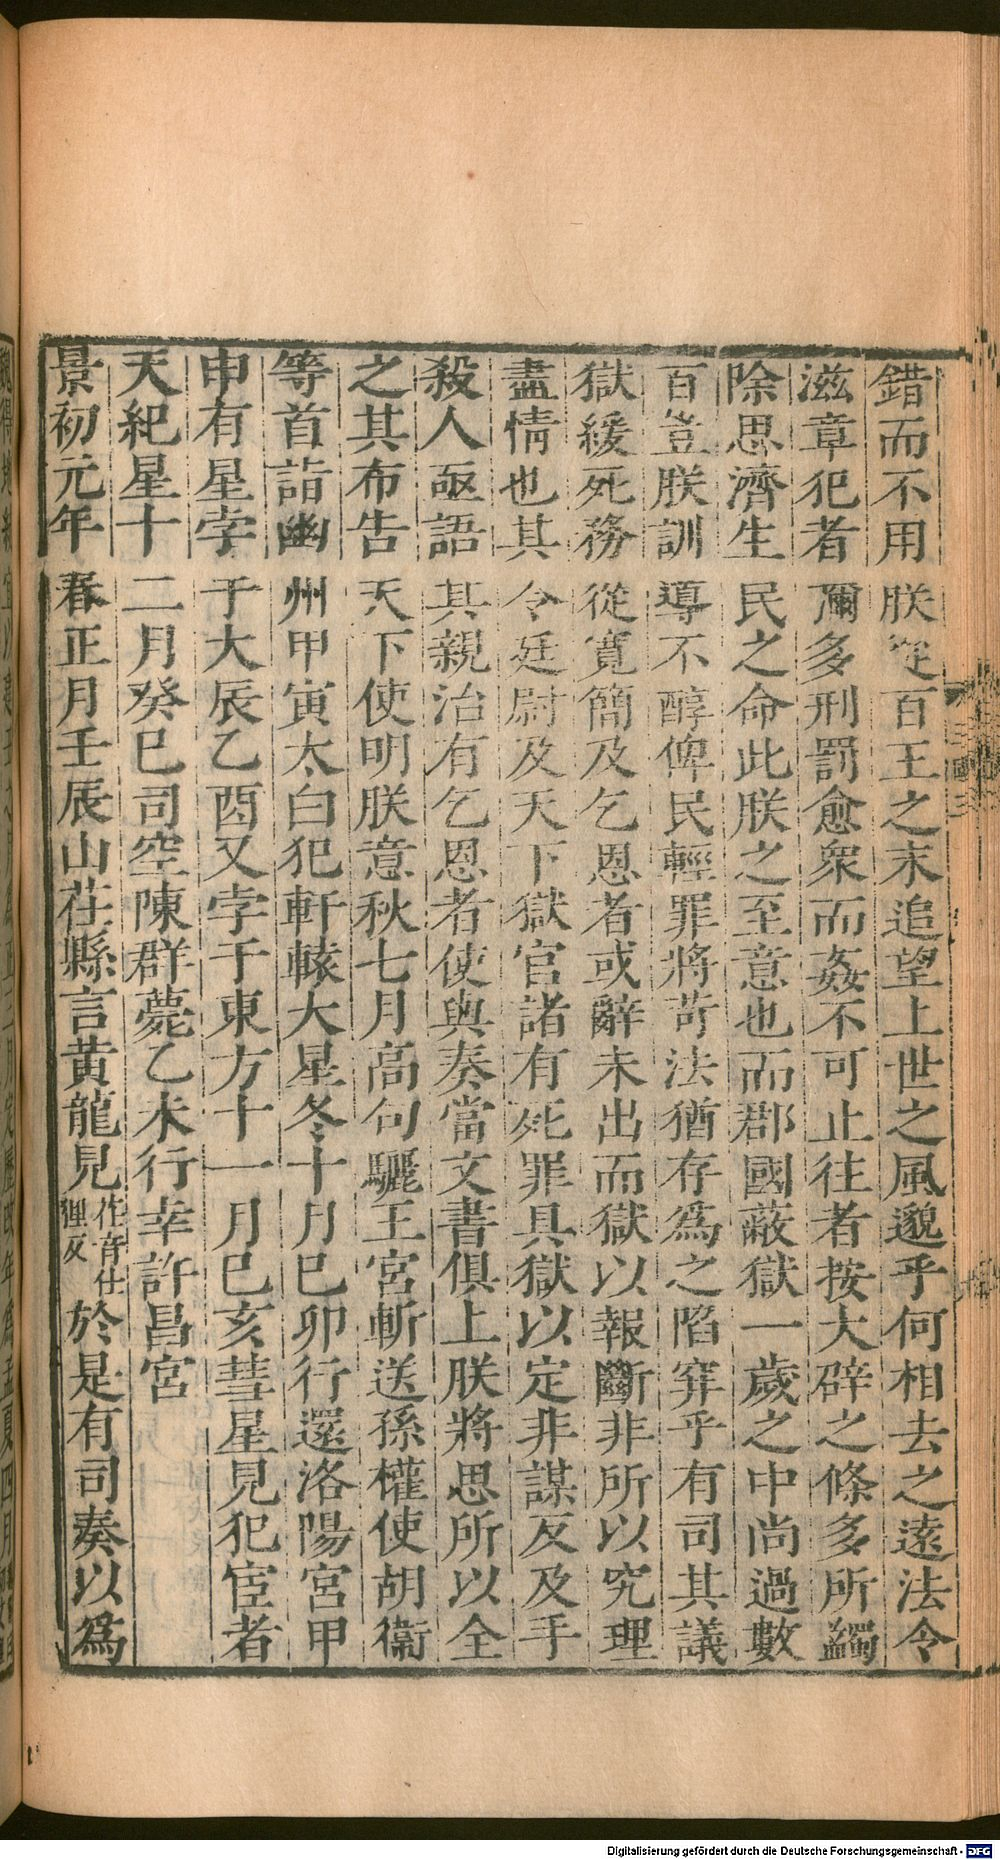 錯而不用朕從百王之末追望上世之風邈乎何相去之遠法令
滋章犯者彌多刑罰愈衆而姦不可止往者按大辟之條多所蠲
除思濟生民之命此朕之至意也而郡國蔽獄一歲之中尚過數
百豈朕訓導不醇俾民輕罪將苛法猶存爲之陷穽乎有司其議
獄緩死務從寬簡及乞恩者或辭未出而獄以報斷非所以究理
盡情也其令廷尉及天下獄官諸有死罪具獄以定非謀反及手
殺人亟語其親治有乞恩者使與奏當文書俱上朕將思所以全
之其布告天下使明朕意秋七月高句驪王宮斬送孫權使胡衞
等首詣幽州甲寅太白犯軒轅大星冬十月己卯行還洛陽宮甲
申有星孛于大辰乙酉又孛于東方十一月己亥彗星見犯宦者
天紀星十二月癸巳司空陳群薨乙未行幸許昌宮
景初元年春正月壬辰山茌縣言黃龍見茌音仕貍反於是有司奏以爲
Digitalisierung gefördert durch die Deutsche Forschungsgemeinschaft - DFG